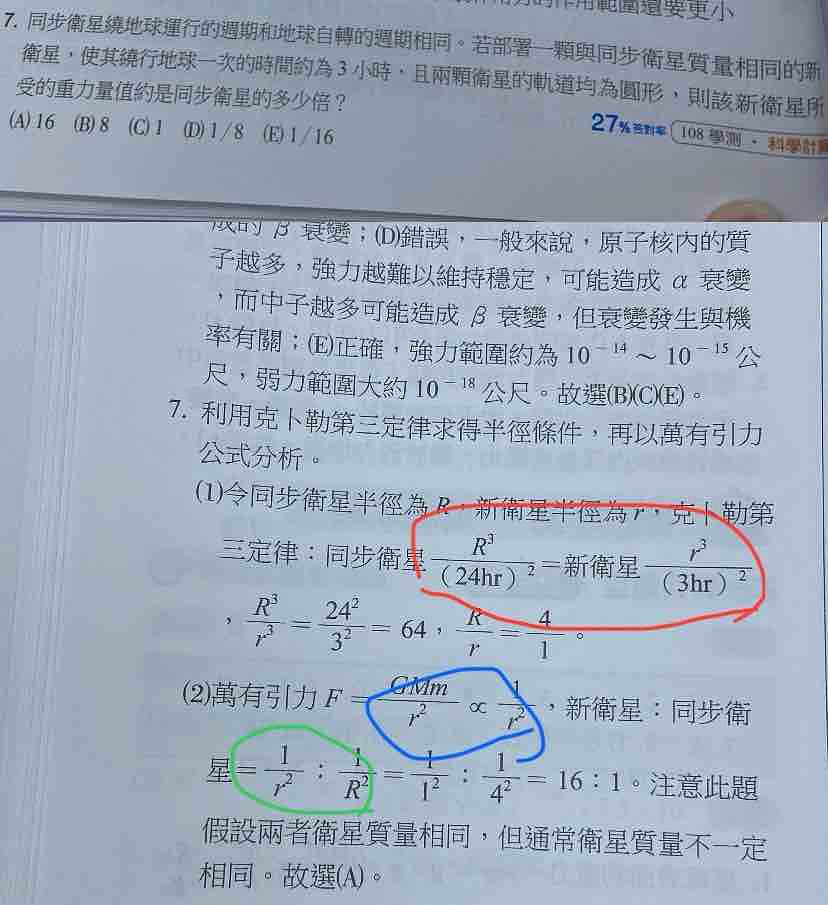 範圍還要更小
7. 同步衛星繞地球運行的週期和地球自轉的週期相同。若部署一顆與同步衛星質量相同的新
衛星，使其繞行地球一次的時間約為 3 小時，且兩顆衛星的軌道均為圓形，則該新衛星所
受的重力量值約是同步衛星的多少倍？
(A) 16 (B) 8 (C) 1 (D) 1/8 (E) 1/16
27% 答對率 108 學測・科學計
成的 β 衰變；(D)錯誤，一般來說，原子核內的質
子越多，強力越難以維持穩定，可能造成 α 衰變
，而中子越多可能造成 β 衰變，但衰變發生與機
率有關；(E)正確，強力範圍約為 10⁻¹⁴ ～ 10⁻¹⁵ 公
尺，弱力範圍大約 10⁻¹⁸ 公尺。故選(B)(C)(E)。
7. 利用克卜勒第三定律求得半徑條件，再以萬有引力
公式分析。
(1)令同步衛星半徑為 R，新衛星半徑為 r，克卜勒第
三定律：同步衛星 R³/（24hr）² ＝新衛星 r³/（3hr）²
，R³/r³ ＝ 24²/3² ＝ 64，R/r ＝ 4/1。
(2)萬有引力 F ＝ GMm/r² ∝ 1/r²，新衛星：同步衛
星＝ 1/r² ： 1/R² ＝ 1/1² ： 1/4² ＝ 16：1。注意此題
假設兩者衛星質量相同，但通常衛星質量不一定
相同。故選(A)。